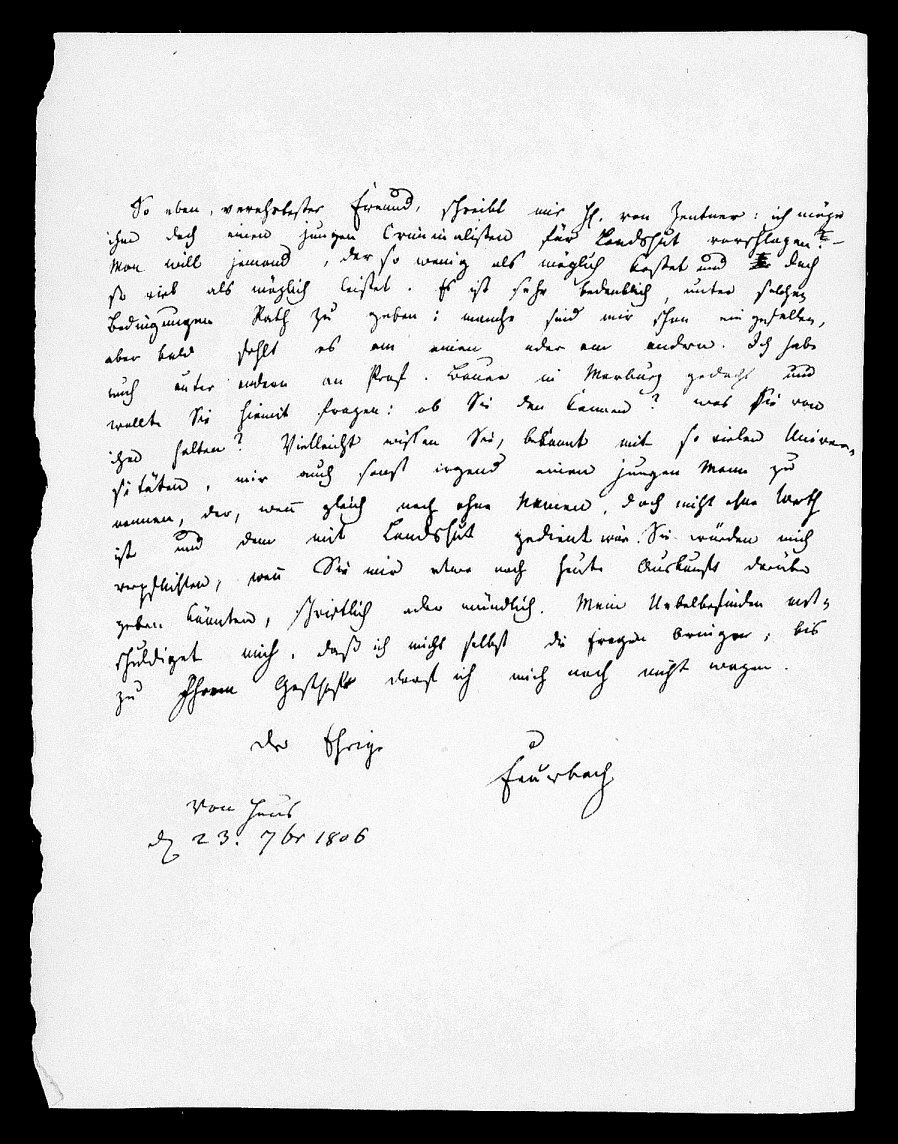 So eben, verehrtester Freund, schreibt mir H. von Zentner: ich möge
ihm doch einen jungen Criminalisten für Landshut vorschlagen. –
Man will jemand, der so wenig als möglich kostet und doch
so viel als möglich leistet. Es ist sehr bedenklich, unter solchen
Bedingungen Rath zu geben: manche sind mir schon eingefallen,
aber bald fehlt es am einen oder am andern. Ich habe
auch unter andern an Prof. Bauer in Marburg gedacht und
wollte Sie hiemit fragen: ob Sie den kennen? was Sie von
ihm halten? Vielleicht wissen Sie, bekannt mit so vielen Univer-
sitäten, mir auch sonst irgend einen jungen Mann zu
nennen, der, wenn gleich noch ohne Namen, doch nicht ohne Werth
ist und dem mit Landshut gedient wär. Sie würden mich
verpflichten, wenn Sie mir etwa noch heute Auskunft darüber
geben könnten, schriftlich oder mündlich. Mein Uebelbefinden ent-
schuldiget mich, daß ich nicht selbst die Fragen bringe; bis
zu Ihrem darf ich mich noch nicht wagen.
Der Ihrige
Feuerbach
Von Haus
d 23. 7br 1806